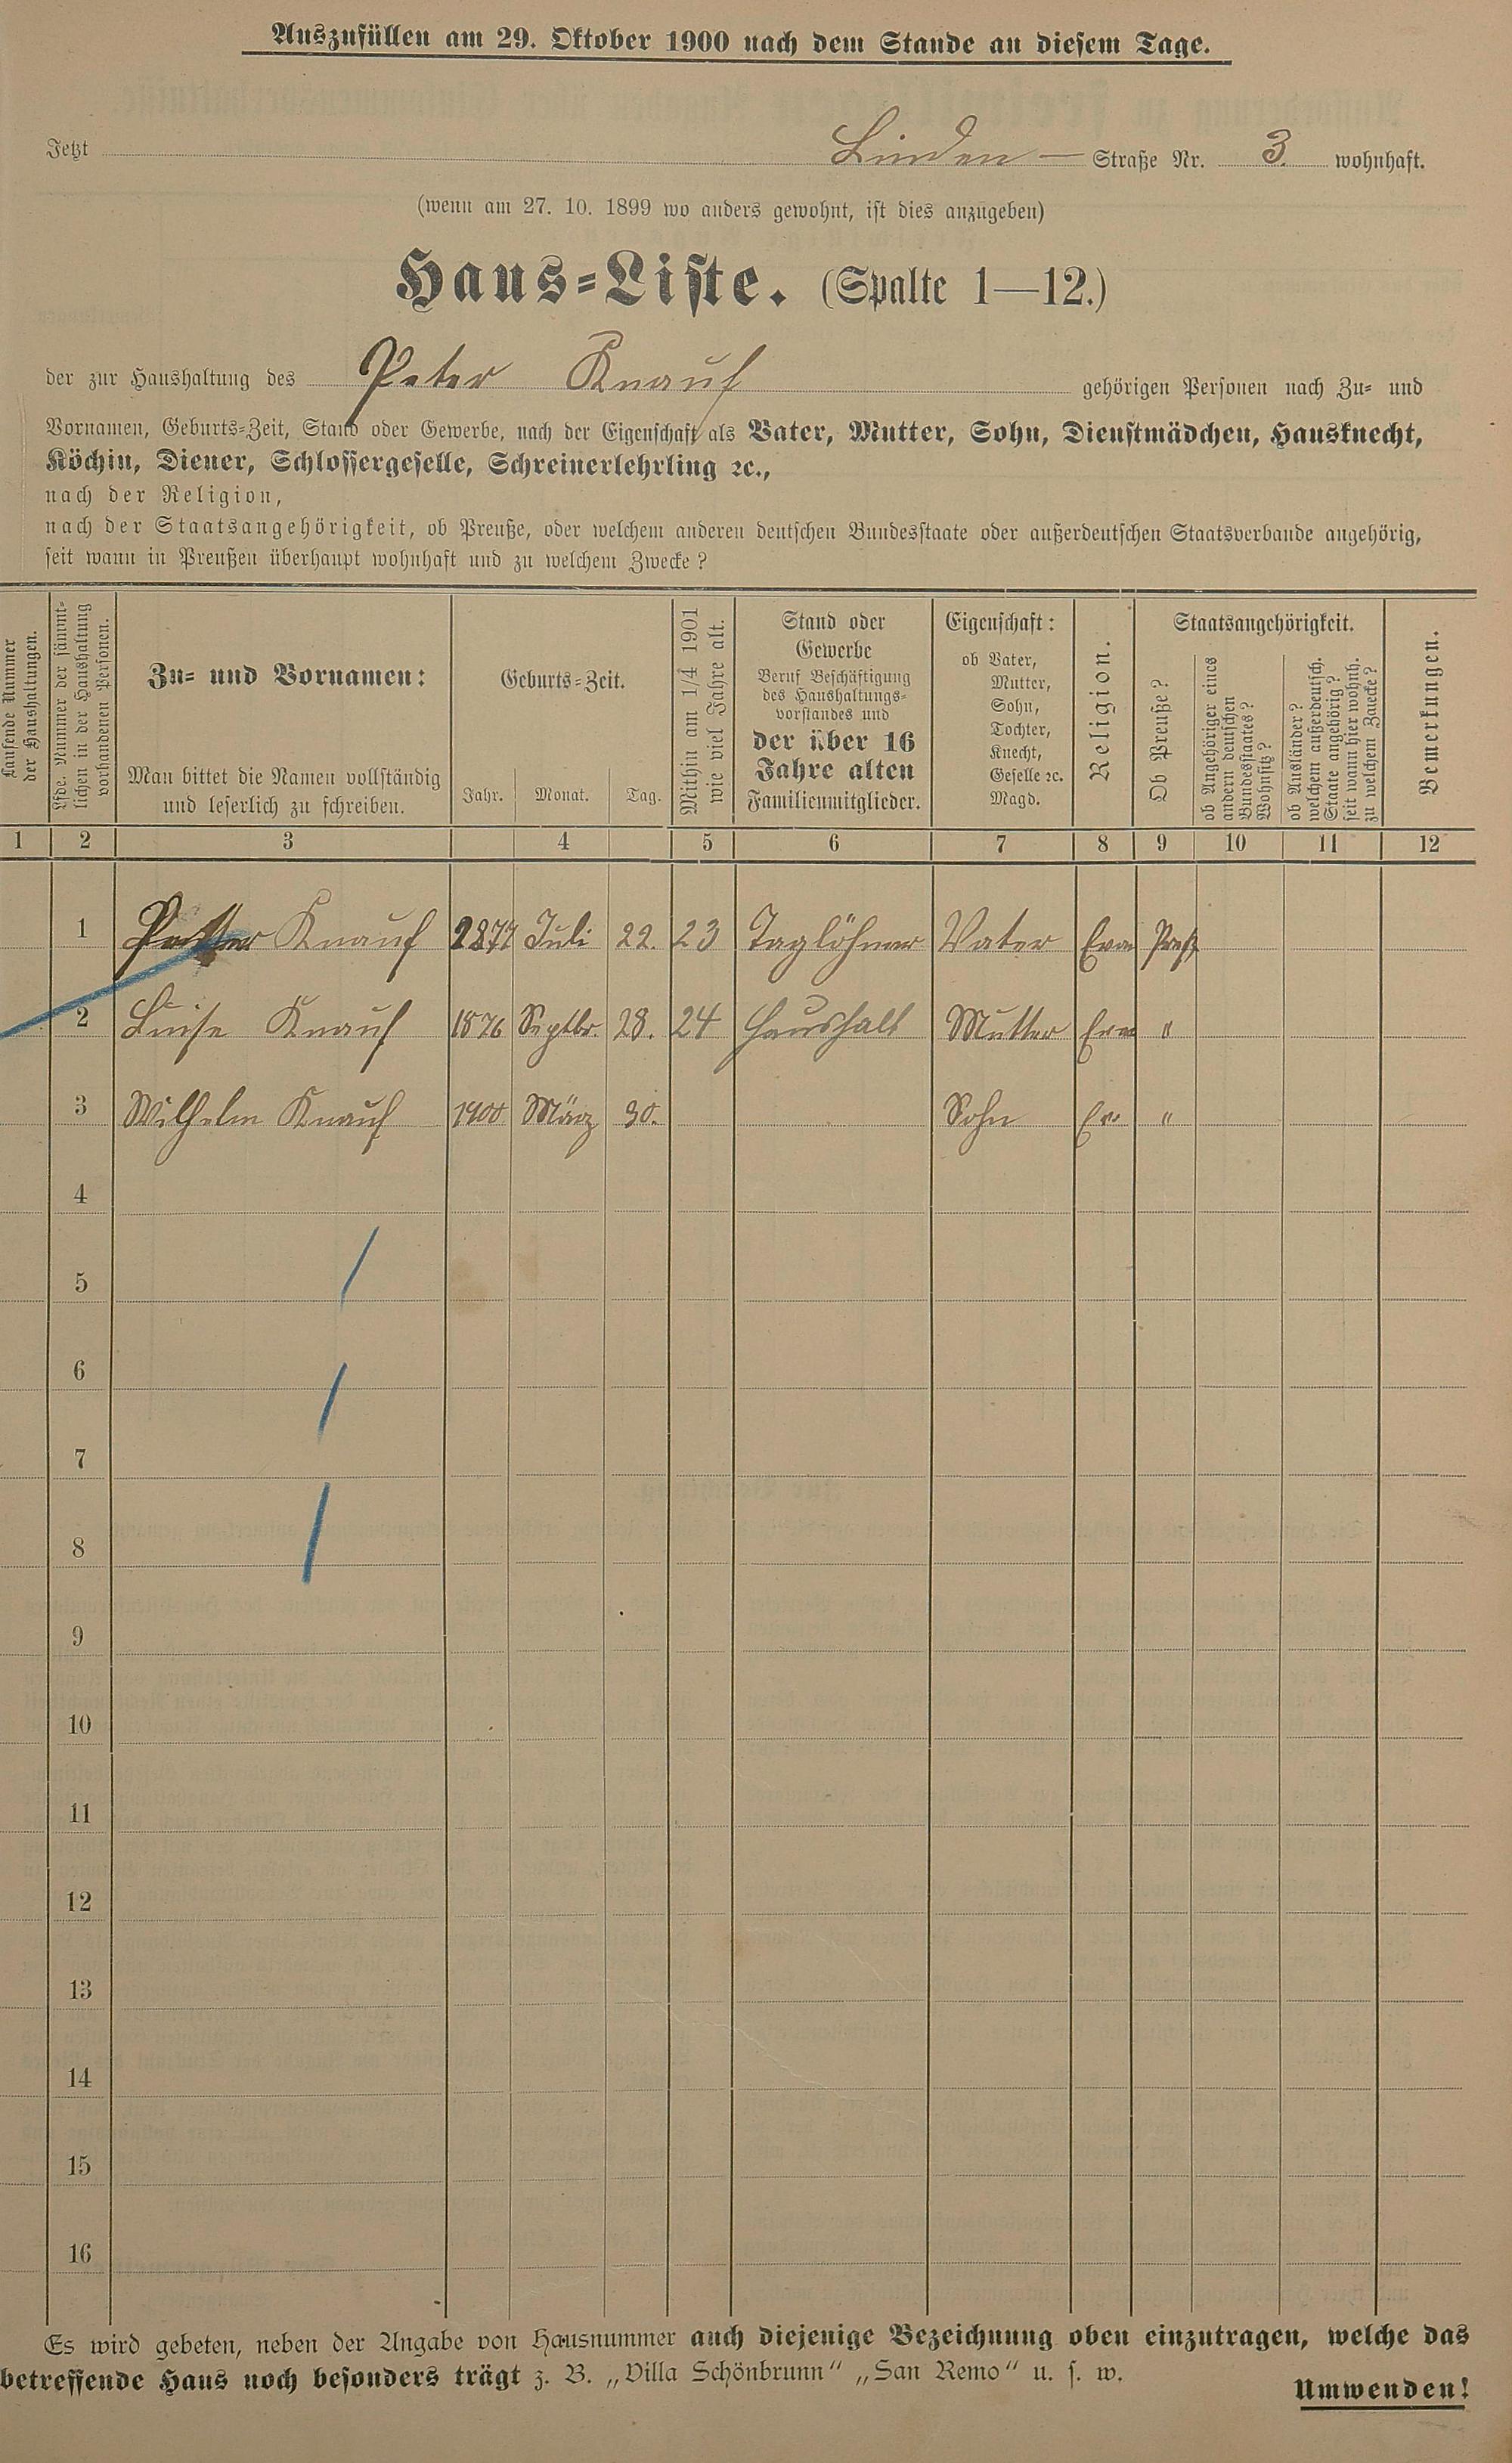 Auszufüllen am 29. Oktober 1900 nach dem Stande an diesem Tage.
Jetzt Linden — Straße Nr. 3. wohnhaft.
(wenn am 27. 10. 1899 wo anders gewohnt, ist dies anzugeben)
Haus=Liste. (Spalte 1—12.)
der zur Haushaltung des Peter Knauf gehörigen Personen nach Zu= und
Vornamen, Geburts=Zeit, Stand oder Gewerbe, nach der Eigenschaft als Vater, Mutter, Sohn, Dienstmädchen, Hausknecht,
Köchin, Diener, Schlossergeselle, Schreinerlehrling ꝛc.,
nach der Religion,
nach der Staatsangehörigkeit, ob Preuße, oder welchem anderen deutschen Bundesstaate oder außerdeutschen Staatsverbande angehörig,
seit wann in Preußen überhaupt wohnhaft und zu welchem Zwecke?
Laufende Nummer
der Haushaltungen.
Lfde. Nummer der sämmt=
lichen in der Haushaltung
vorhandenen Personen.
Zu= und Vornamen:
Man bittet die Namen vollständig
und leserlich zu schreiben.
Geburts=Zeit.
Jahr. Monat. Tag.
Mithin am 1/4 1901
wie viel Jahre alt.
Stand oder
Gewerbe
Beruf Beschäftigung
des Haushaltungs=
vorstandes und
der über 16
Jahre alten
Familienmitglieder.
Eigenschaft:
ob Vater,
Mutter,
Sohn,
Tochter,
Knecht,
Geselle ꝛc.
Magd.
Religion.
Staatsangehörigkeit.
Ob Preuße?
ob Angehöriger eines
andern deutschen
Bundesstaates?
Wohnsitz?
ob Ausländer?
welchem außerdeutsch.
Staate angehörig?
seit wann hier wohnh.
zu welchem Zwecke?
Bemerkungen.
1 2 3 4 5 6 7 8 9 10 11 12
1 Peter Knauf 1877 Juli 22. 23 Taglöhner Vater Evan Preß
2 Luise Knauf 1876 Septbr. 28. 24 Haushalt Mutter Evan "
3 Wilhelm Knauf 1900 März 30. Sohn Ev "
4
5
6
7
8
9
10
11
12
13
14
15
16
Es wird gebeten, neben der Angabe von Hausnummer auch diejenige Bezeichnung oben einzutragen, welche das
betreffende Haus noch besonders trägt z. B. „Villa Schönbrunn" „San Remo" u. s. w.
Umwenden!